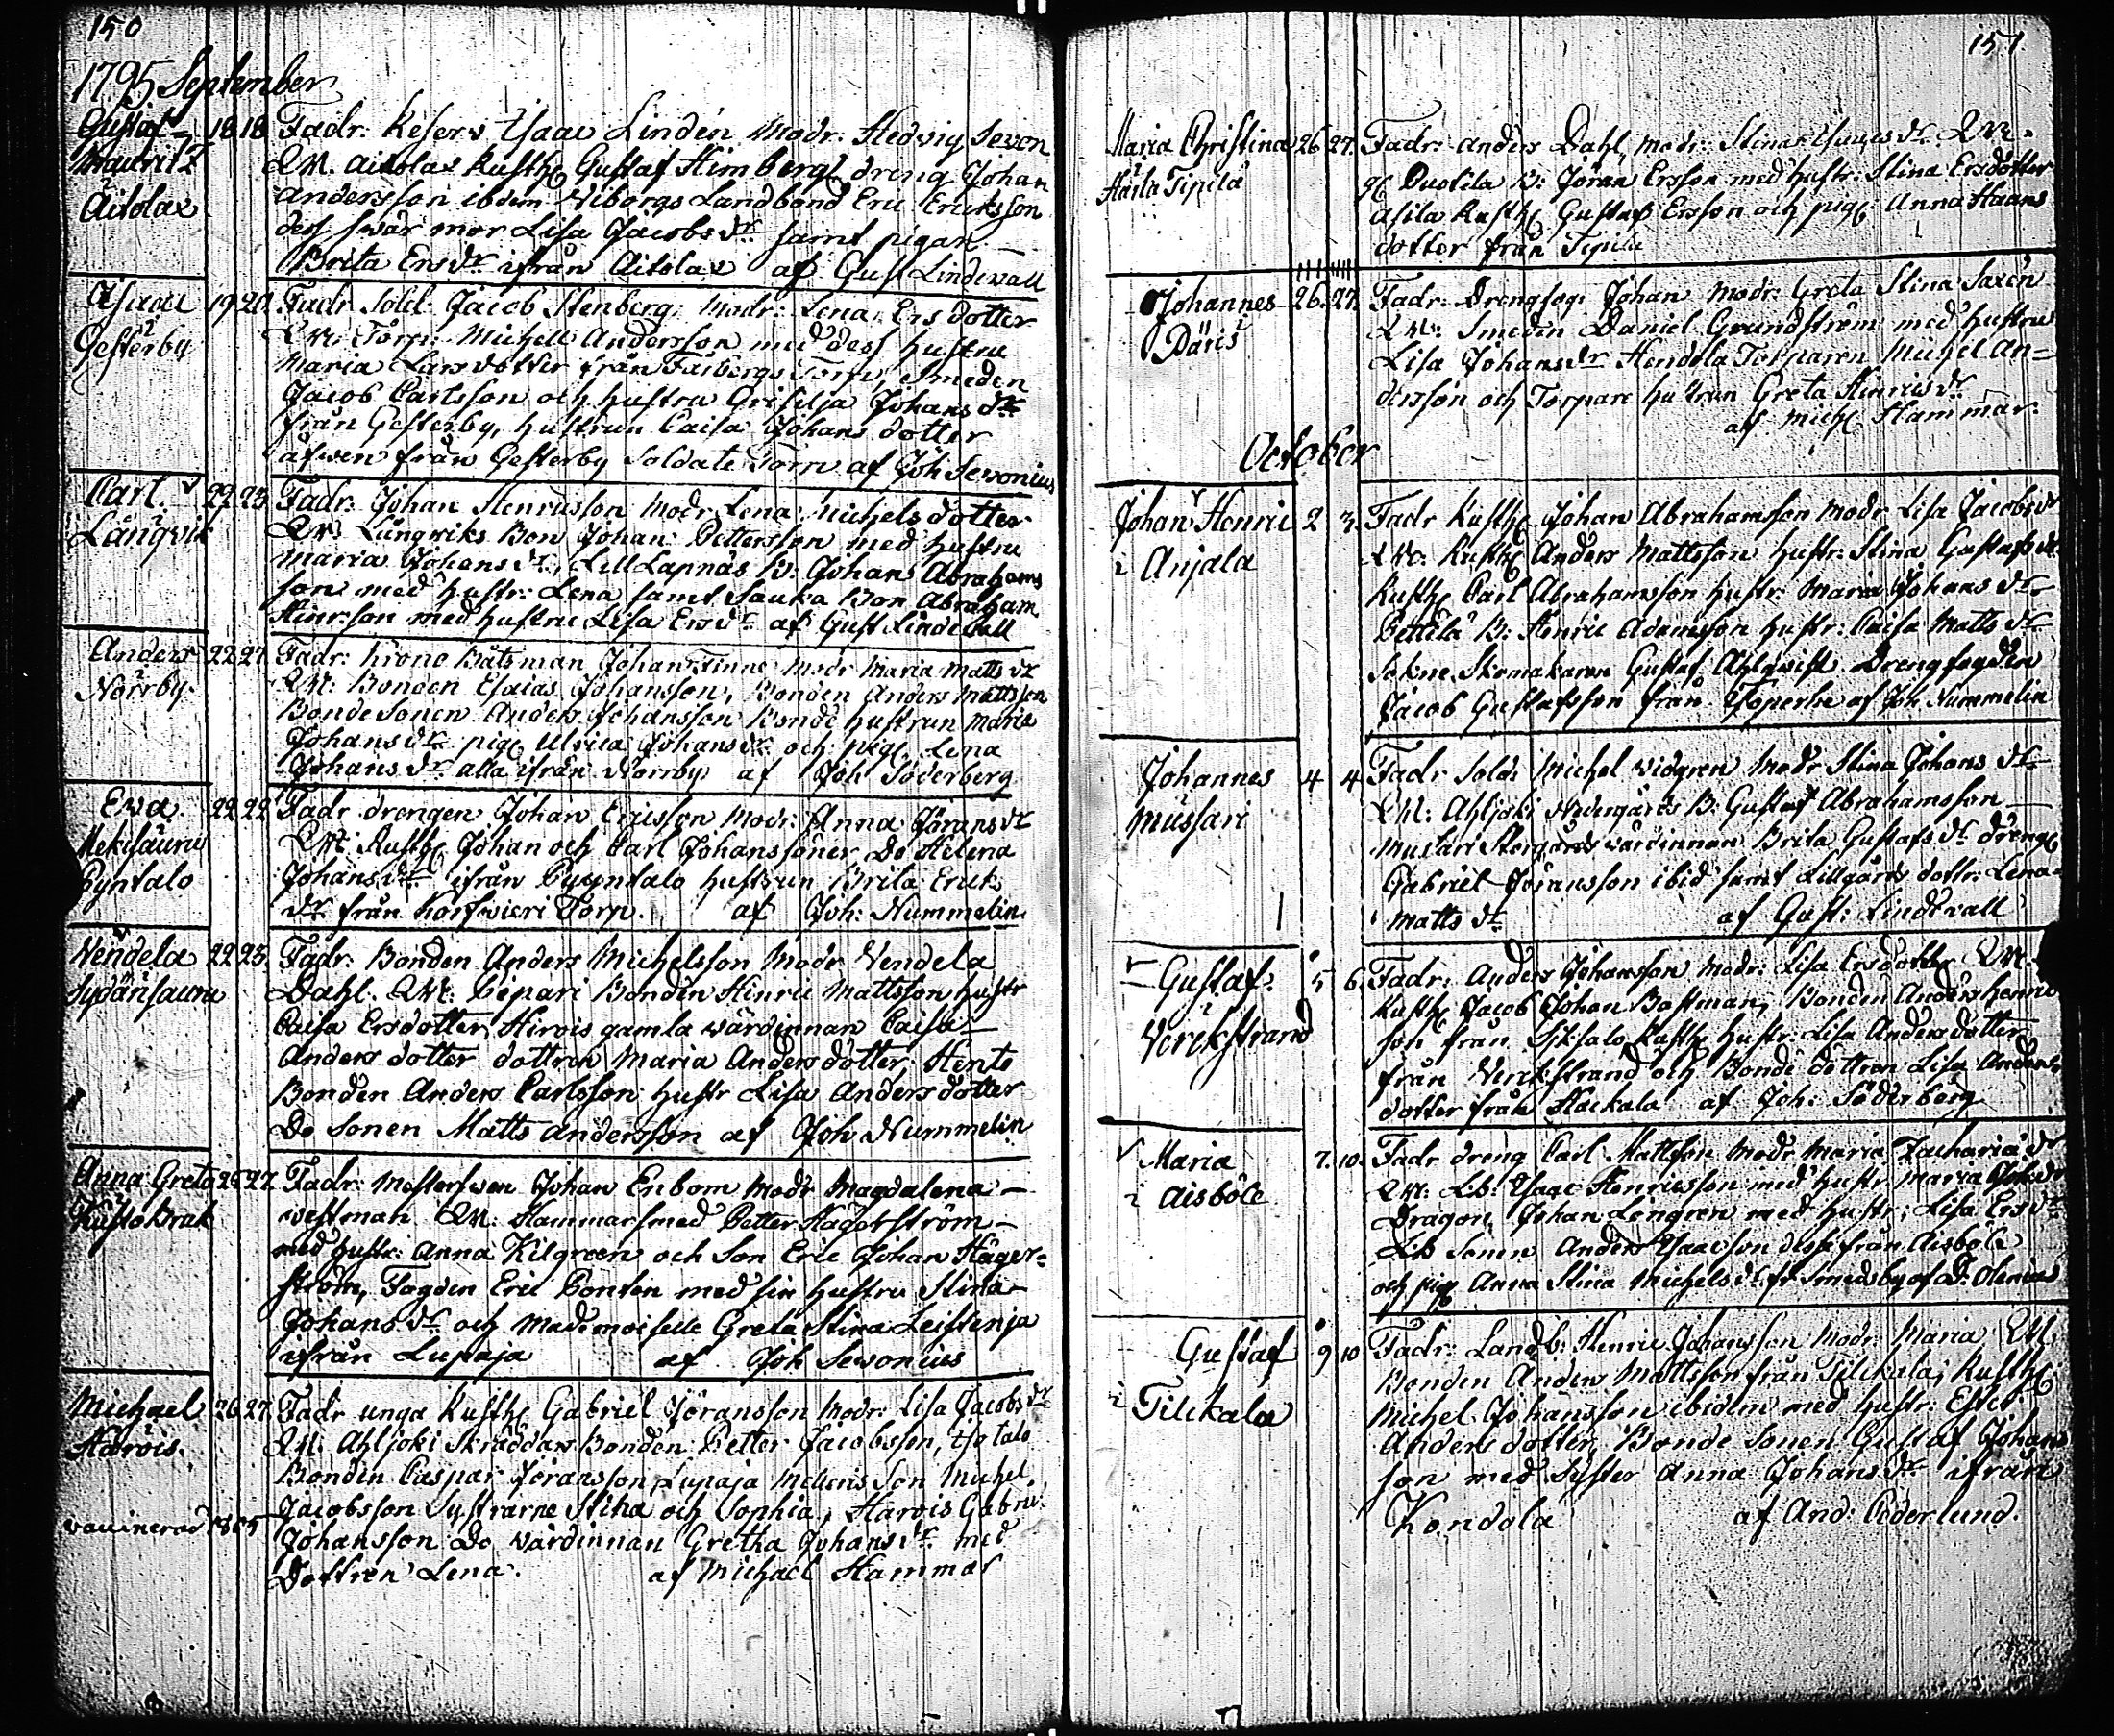 150
1795 September
Gustaf 18 18 Fadr: Reserv Isaac Lindén Modr: Hedvig Sevon
Mauritz QM. Aitolax Rusth: Gustaf Himberg dreng Johan
Aitolax Andersson ibdem Viborgs Landbond Eric Ericksson
dess swär mor Lisa Jacobs dr samt pigan
Brita Ers dr ifrån Aitolax af Gust Lindewall
Isaac 19 20 Fadr Sold. Jacob Stenberg: Modr: Lena Ers dotter
Gesterby QM: Torp: Michell Andersson med dess hustru
Maria Larsdotter från Torp, Smeden
Jacob Carlsson och hustru Grisilja Johans dr
från Gesterby, hustrun Caisa Johans dotter
äfwen från Gesterby Soldate Torp af Joh Sewonius
Carl 22 23 Fadr: Johan Henricsson Modr Lena Michels dotter
Långvik QM: Långwiks Bon Johan Pettersson med hustru
Maria Johans dr, Lill Lapnäs B: Johan Abrahams
son med hustr: Lena samt Sauka Bon Abraham
Hinrsson med hustru Lisa Ers dr af Gust Lindewall
Anders 22 27 Fadr: Krono Båtsman Johan Finne Modr Maria Matts dr
Norrby QM: Bonden Esaias Johansson, Bonden Anders Mattsson
Bondesonen Anders Johansson Bonde hustrun Maria
Johans dr pig: Ulrica Johans dr och pig: Lena
Johans dr alla ifrån Norrby af Joh Söderberg
Eva 22 22 Fadr drengen Johan Ericsson Modr: Anna Jörans dr
Mekisauru QM: Rusth: Johan och Carl Johanssöner Do Helena
Pyntalo Johans dr ifrån Pyyntalo hustrun Brita Erics
dr från Torp. af Joh: Nummelin
Vendela 22 23 Fadr: Bonden Anders Michelsson Modr Vendela
Sydänsauru Dahl. QM: Pepari Bonden Hinric Mattsson hustr
Caisa Ersdotter, Hirvis gamla wärdinnan Caisa
Anders dotter dottren Maria Anders dotter, Hents
Bonden Anders Carlsson hustr Lisa Anders dotter
Do Sonen Matts Andersson af Joh Nummelin
Anna Greta 26 27 Fadr: Mestersven Johan Enbom Modr Magdalena
Kusto Bruk westman QM: Hammarsmed Petter Hägerström
med hustr: Anna Kilgreen och Son Eric Johan Häger-
ström, Fogden Eric Ponten med sin hustru Stina
Johans dr och Mademoiselle Greta Stina Leistenja
ifrån Lupaja af Joh Sewonius
Michael 26 27 Fadr unga Rusth: Gabriel Jöransson Modr: Lisa Jacobs dr
Harvis QM: Ahljoki Skräddars Bonden Petter Jacobsson,
Bonden Caspar Jöransson, Lupaja Son Michel
Jacobsson Systrarne Stina och Sophia, Harvis Gabri
vaccinerad 1805 Johansson Do wärdinnan Gretha Johans dr med
Dottren Lena. af Michael Hammar
151
Maria Christina 26 27. Fadr: Anders Dahl, Modr: Stina dr. QM.
Haila Tipilä Duolila B: Jöran Ersson med hustr: Stina Ersdotter
Asila Rusth: Gustaf Ersson och pig: Anna Haans
dotter från Tipilä
Johannes 26. 27. Fadr: Drengfog: Johan Modr: Greta Stina Saxén
Däris QM: Smeden Daniel Grundström med hustru
Lisa Johans dr Hendola Torparen Michel An-
dersson och Torpare hustrun Greta Hinrics dr
af Mich: Hammar.
October
Johan Henric 2 3. Fadr Rusth: Johan Abrahamsson Modr Lisa Jacobs dr
i Anjala QM: Rusth: Anders Mattsson hustr: Stina Gustafs dr
Rusth: Carl Abrahamsson hustr: Maria Johans dr
Pettilä B: Henric Adamsson hustr: Caisa Matts dr
Sokne Skomakaren Gustaf Ahlqvist Drengfogden
Jacob Gustafsson från af Joh Nummelin
Johannes 4 4 Fadr Sold: Michel Vidgren Modr Stina Johans dr
Mussari QM: Ahljoki Nedergårds B: Gustaf Abrahamsson
Mustari Storgårds wärdinnan Brita Gustafs dr Dreng:
Gabriel Jöransson ibid samt Lillgårds dottr: Lena
Matts dr af Gust: Lindevall
Gustaf 5 6. Fadr: Anders Johansson Modr: Lisa Ersdotter QM.
i Rusth: Jacob Johan Bastman, Bonden Anders Henric
Verekstrand son från Rusth: hustr: Lisa Anders dotter
från Verekstrand och Bonde dottren Lisa Anders
dotter från Haekala af Joh: Söderberg
Maria 7. 10. Fadr dreng Carl Mattsson Modr Maria Zacharia dr
i Aisböle QM: Lb: Isaac Henricsson med hustr: Maria Joh dr
Dragon Johan Lengren med hustr: Lisa Ers dr
Lb Sonen Anders Isaacsson desse från Aisböle
och pig: Anna Stina Michels dr fr Smedsby af D: Olenius
Gustaf 9 10 Fadr: Landb: Henric Johansson Modr: Maria QM.
i Tilekala Bonden Anders Mattsson från Tilekala, Rusth:
Michel Johansson ibidem med hustr: Ester
Anders dotter, Bonde Sonen Gustaf Johans
son med Syster Anna Johans dr ifrån
Kondola af And: Cederlund.